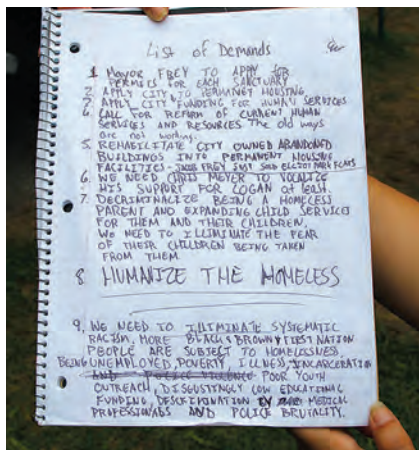 List of Demands
1. MAYOR FREY TO APPLY FOR
PERMITS FOR EACH SANCTUARY
2. APPLY CITY TO PERMANET HOUSING
3. APPLY CITY FUNDING FOR HUMAN SERVICES
CALL FOR REFORM OF CURRENT HUMAN
SERVICES AND RESOURCES The old ways
are not working.
5. REHABILITATE CITY OWNED ABANDONED
BUILDINGS INTO PERMANENT HOUSING
FACILITIES - JACOB FREY JUST SOLD ELLIOT PARK FLATS
6. WE NEED CHRIS MEYER TO VOCALIZE
HIS SUPPORT FOR LOGAN at least.
7. DECRIMINALIZE BEING A HOMELESS
PARENT AND EXPANDING CHILD SERVICES
FOR THEM AND THEIR CHILDREN.
WE NEED TO ILLIMINATE THE FEAR
OF THEIR CHILDREN BEING TAKEN
FROM THEM
8. HUMANIZE THE HOMELESS
9, WE NEED TO ILLIMINATE SYSTEMATIC
RACISM, MORE BLACK & BROWN & FIRST NATION
PEOPLE ARE SUBJECT TO HOMELESSNESS,
BEING UNEMPLOYED, POVERTY, ILLNESS, INCARCERATION
AND POLICE VIOLENCE POOR YOUTH
OUTREACH, DISGUSTINGLY LOW EDUCATIONAL
FUNDING, DESCRIMINATION BY MEDICAL
PROFESSIONALS AND POLICE BRUTALITY.